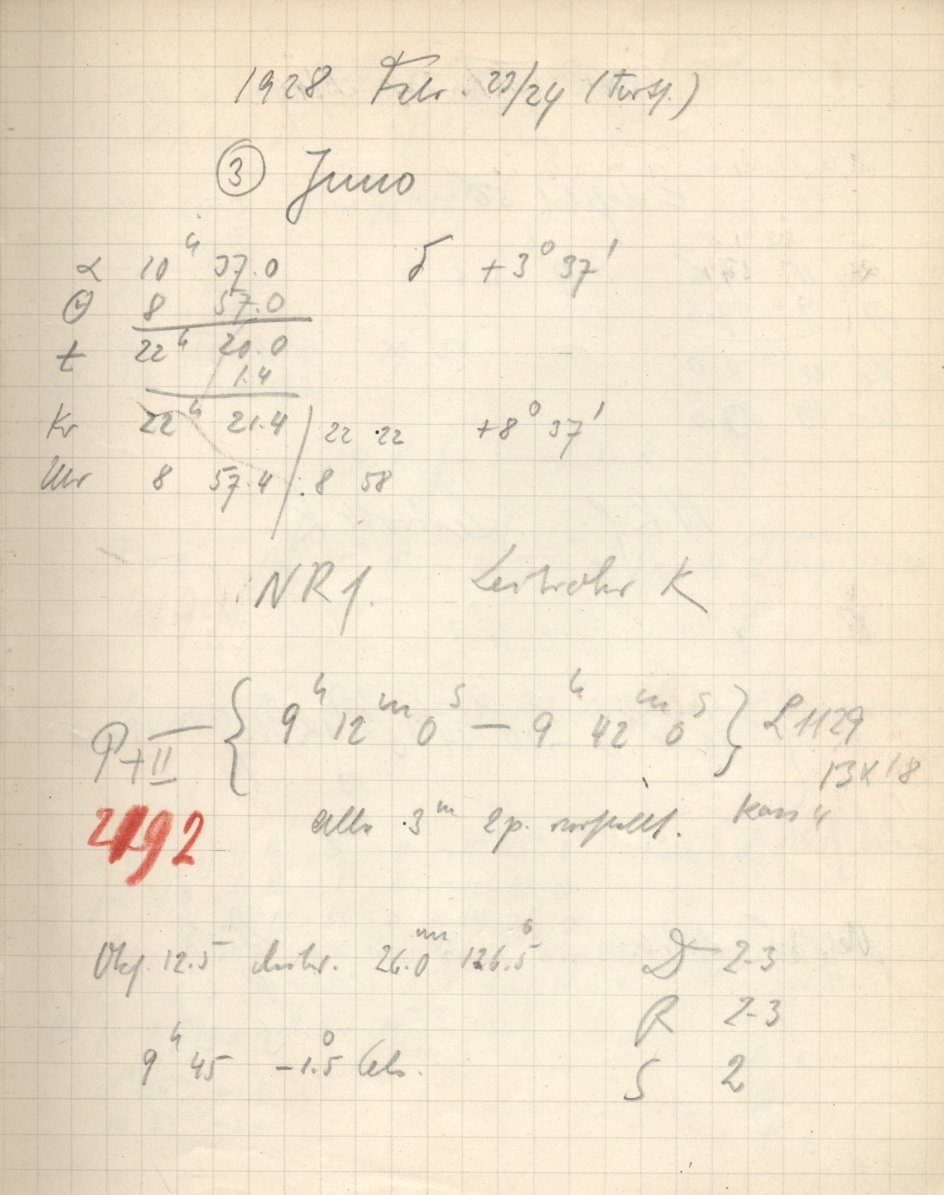 1928 Febr. 23/24 (Forts.)
③ Juno
α 10ʰ 37.0 δ +3° 37'
Θ 8 57.0
t 22ʰ 20.0
1.4
Kr 22ʰ 21.4 22 22 +8° 37'
Uhr 8 57.4 8 58
NRf. Leitrohr K
P+II { 9ʰ 12ᵐ 0ˢ — 9ʰ 42ᵐ 0ˢ } L 1129
13x18
2192
alle 3ᵐ 2p. verstellt. Kass 4
Okf. 12.5 26.0ᵐᵐ 126.5° D 2-3
R 2-3
9ʰ 45 -1.5° Cels. S 2